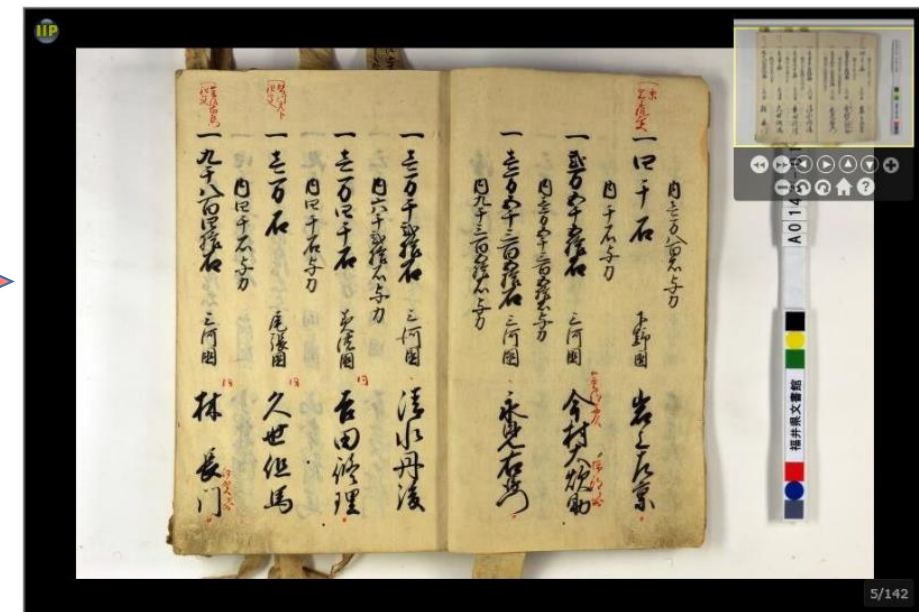 IIP
内壱万八百石与力
一四千石 下野国 岩上左京
内千石与力
一弐万五千五拾石 三河国 今村大炊助
内壱万五千三百五拾石与力
一壱万五千三百五拾石 三河国 永見右衛門
内九千三百五拾石与力
一壱万千弐拾石 三河国 清水丹後
内六千弐拾石与力
一壱万四千石 美濃国 吉田修理
内四千石与力
一壱万石 尾張国 久世但馬
内四千石与力
一九千八百四拾石 三河国 林 長門
福井県文書館
5/142